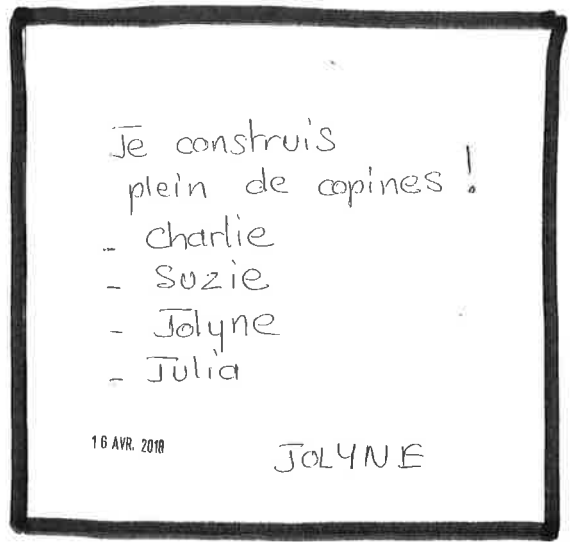 Je construis
plein de copines !
- Charlie
- Suzie
- Jolyne
- Julia
16 AVR. 2018
JOLYNE